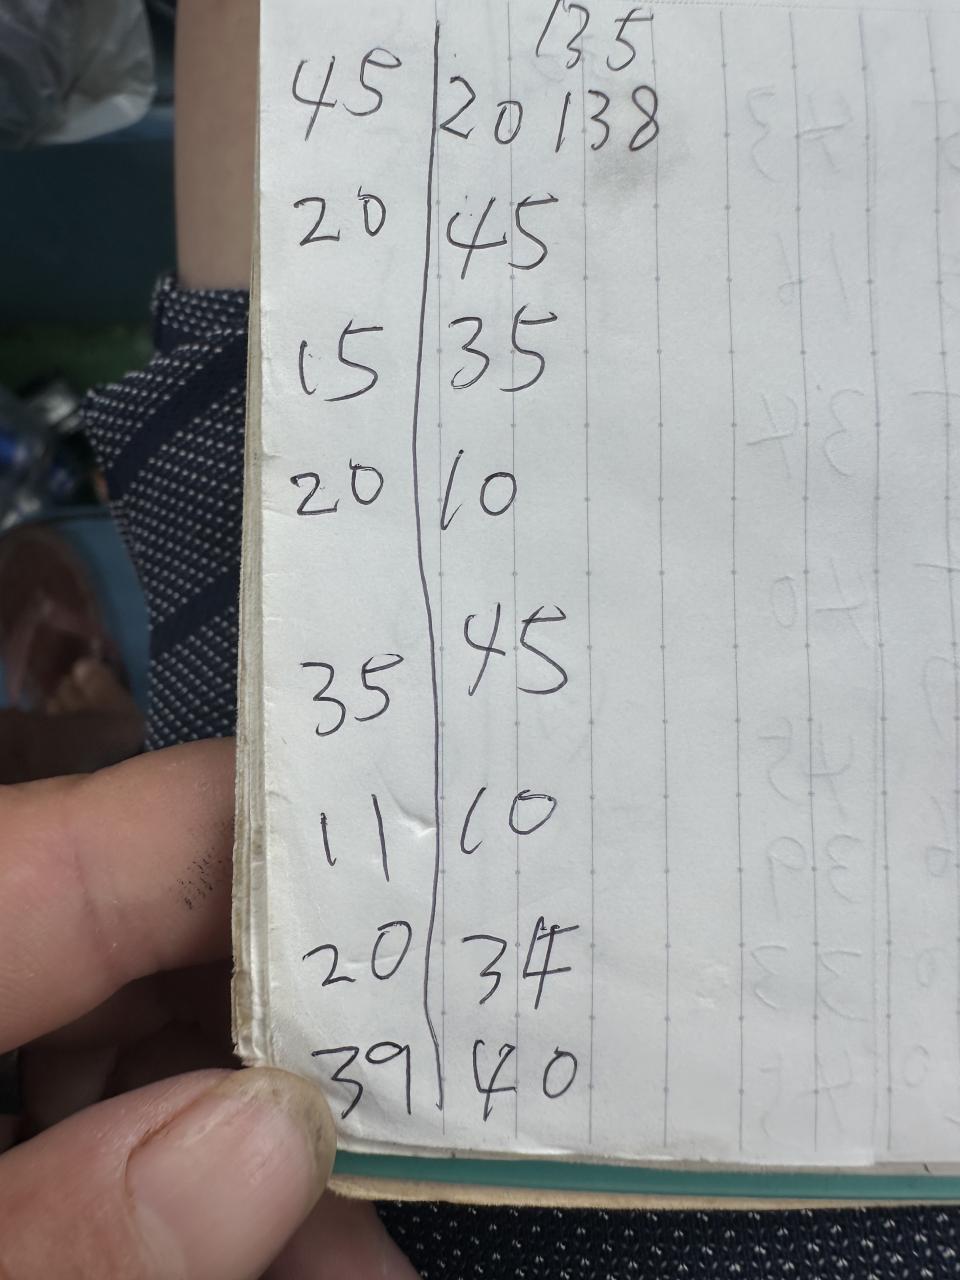 135
45 20 138
20 45
15 35
20 10
35 45
11 10
20 34
39 40